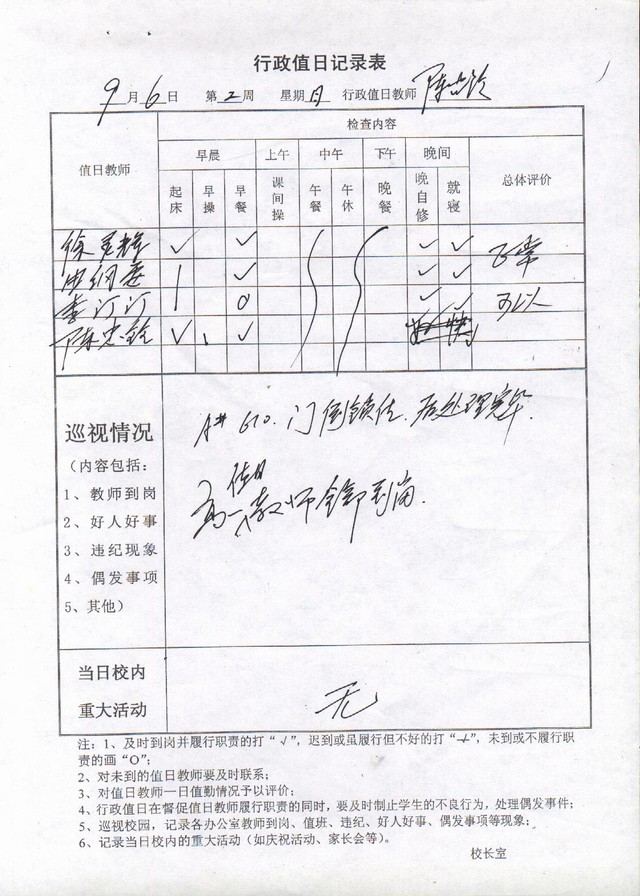 行政值日记录表
9月6日 第2周 星期日 行政值日教师 陈忠铨
值日教师 检查内容
早晨 上午 中午 下午 晚间 总体评价
起床 早操 早餐 课间操 午餐 午休 晚餐 晚自修 就寝
√ √ √ √ 正常
√ √ √
李汀汀 O √ √ 可以
陈忠铨 √ √
巡视情况
(内容包括:
1、教师到岗
2、好人好事
3、违纪现象
4、偶发事项
5、其他)
A# 610.门倒锁住.后处理完毕.
高一值日教师全部到岗.
当日校内
重大活动
无
注:1、及时到岗并履行职责的打“√”,迟到或虽履行但不好的打“”,未到或不履行职
责的画“O”;
2、对未到的值日教师要及时联系;
3、对值日教师一日值勤情况予以评价;
4、行政值日在督促值日教师履行职责的同时,要及时制止学生的不良行为,处理偶发事件;
5、巡视校园,记录各办公室教师到岗、值班、违纪、好人好事、偶发事项等现象;
6、记录当日校内的重大活动(如庆祝活动、家长会等)。
校长室